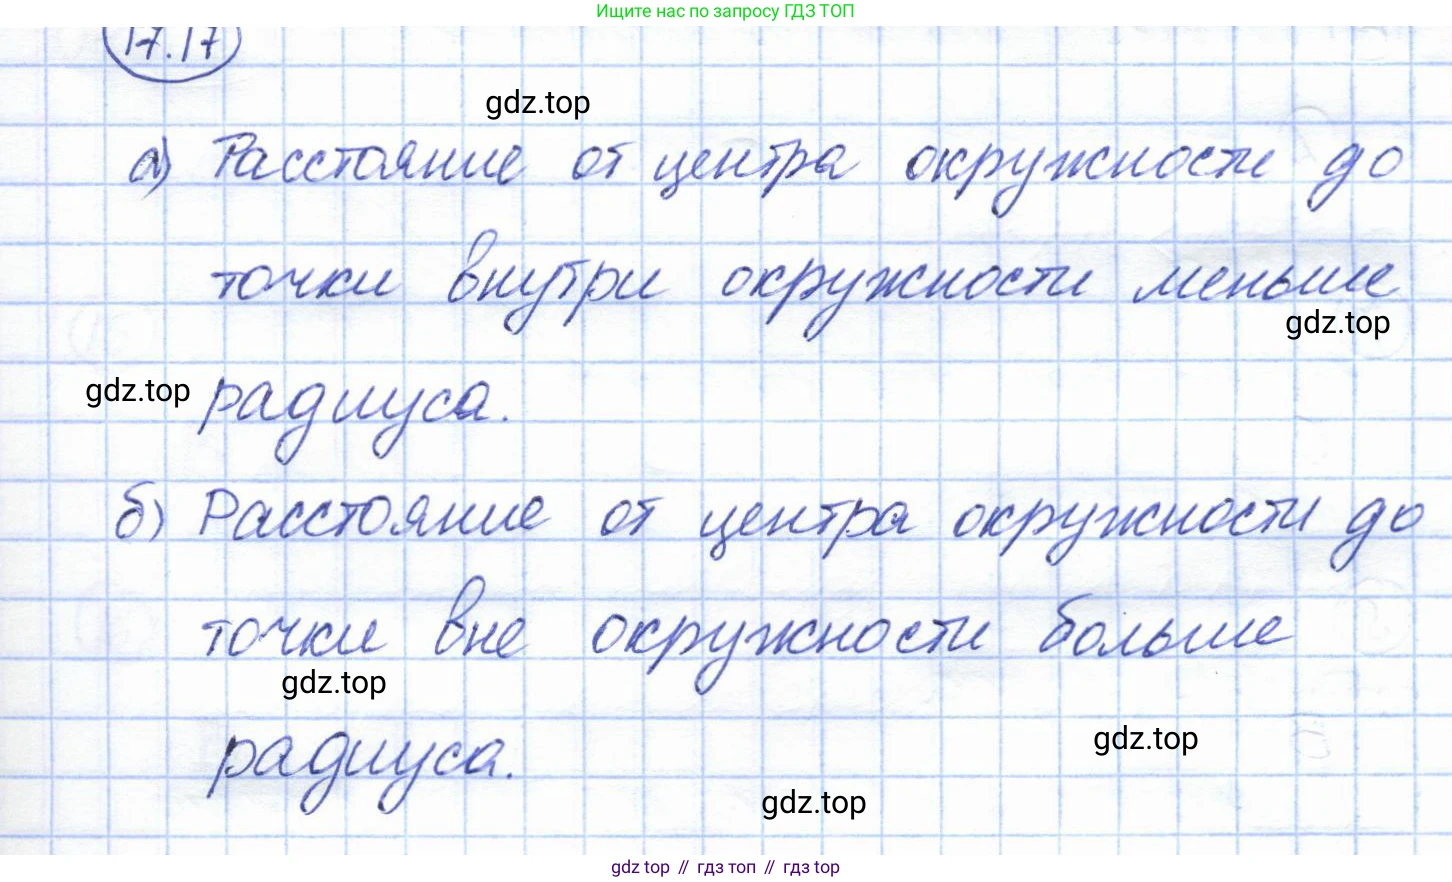 Ищите нас по запросу ГДЗ ТОП
17.17
gdz.top
а) Расстояние от центра окружности до
точки внутри окружности меньше
gdz.top
gdz.top
радиуса.
б) Расстояние от центра окружности до
точки вне окружности больше
gdz.top
gdz.top
радиуса.
gdz.top
gdz top // гдз топ // гдз top